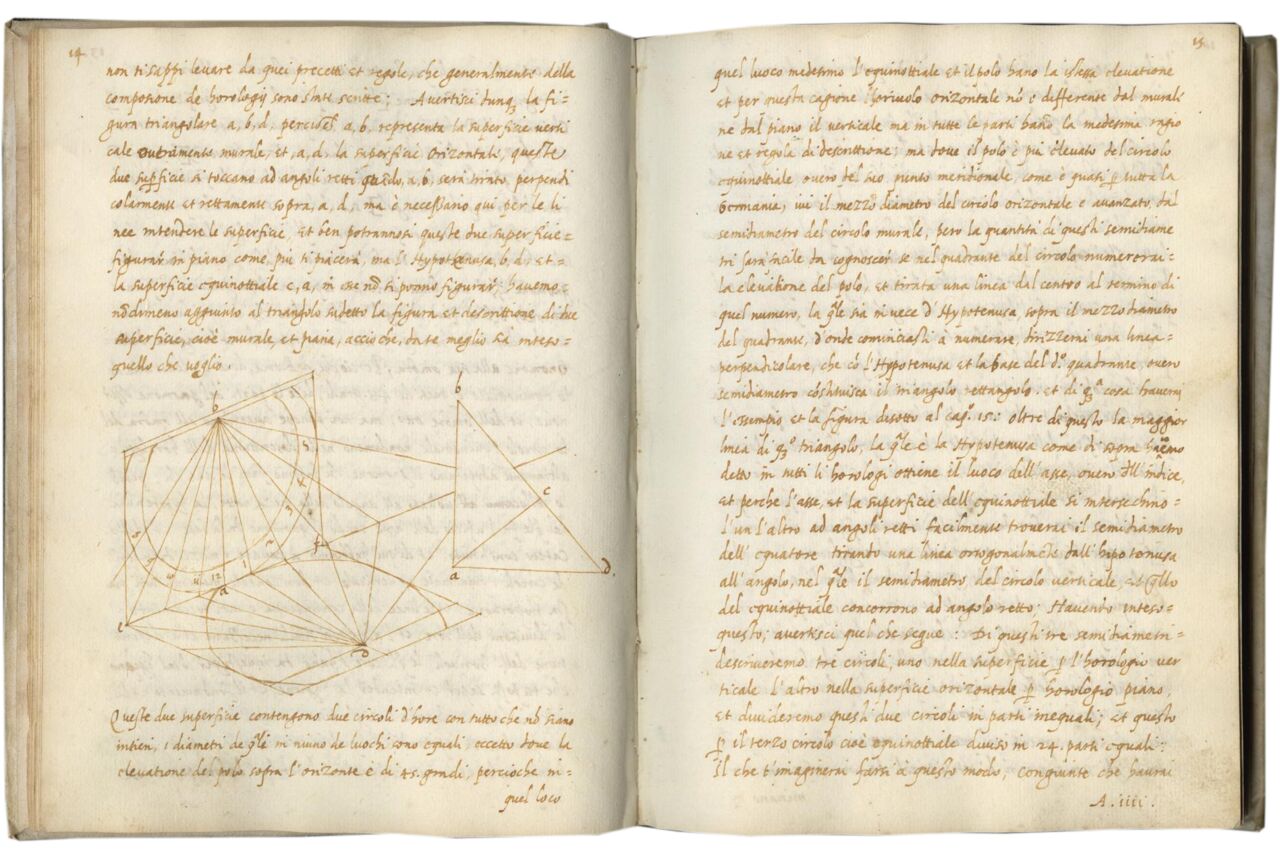 14
non ti sappi levare da quei precetti et regole, che generalmente della
composione de horologij sono state scritte; Avertisci dunq, la fi=
gura triangolare a, b, d, percioche a, b, representa la superficie verti
cale murale, et, a, d, la superficie orizontale, queste
due supficie si toccano ad angoli retti quãdo, a, b, sera tirato, perpendi
colarmente et rettamente sopra, a, d, ma è necessario qui per le li
nee intendere le superficie, et ben potrannosi queste due superficie=
figurar in piano come, piu ti piacera, ma l' Hypotenusa, b, d, et=
la superficie equinottiale c, a, in esse nõ si ponno figurar; havemo=
nõdimeno aggiunto al triangolo sudetto la figura et descrittione di due
superficie, cioè murale, et piana, accioche, da te meglio sia inteso=
quello che voglio.
b
b
5
4
3
c
c
6
5
4
11
12
1
a
a
d
e
d
Queste due superficie contengono due circoli d'hore con tutto che nõ siano
intieri, i diametri de qle in niuno de luochi sono equali, eccetto dove la
elevatione del polo sopra l'orizonte è di 45. gradi, percioche ni=
quel loco
15
quel luoco medesimo l'equinottiale et il polo hano la istessa elevatione
et per questa cagione l'horivolo orizontale nõ e differente dal murale
ne dal piano il verticale ma in tutte le parti hano la medesima ragio
ne et regola di descrittione; ma dove il polo è piu elevato del circolo
equinottiale overo del suo punto meridionale, come è quasi p tutta la
Germania, ivi il mezzo diametro del circolo orizontale e avanzato, dal
semidiametro del circolo murale, pero la quantità di questi semidiame
tri sara facile da cognoscer se nel quadrante del circolo numerorai=
la elevatione del polo, et tirata una linea dal centro al termino di
quel numero, la qle sia in vece d'Hypotenusa, sopra il mezzo diametro
del quadrante, d'onde cominciasti a numerare, drizzerai una linea=
perpendicolare, che cõ l'Hypotenusa et la base del d.º quadrante, overo
semidiametro cõstituisca il triangolo rettangolo. et di qª cosa troverai
l'essempio et la figura disotto al cap.º 15: oltre di questo la maggior
linea di qº triangolo, la qle è la Hypotenusa come di sopra havemo
detto in tutti li horologi ottiene il luoco dell'asse, overo dll' indice,
et perche l'asse, et la superficie dell'equinottiale si intersechino=
l'un l'altro ad angoli retti facilmente troverai il semidiametro
dell'equatore tirando una linea ortogonalmẽte dall'hipotenusa
all'angolo, nel qle il semidiametro del circolo verticale, et qllo
del equinottiale concorrono ad angolo retto: Havendo inteso=
questo; avertisci quel che segue: Di questi tre semidiametri=
descriveremo tre circoli, uno nella superficie p l'horologio ver
ticale l'altro nella superficie orizontale p horologio piano,
et divideremo questi due circoli in parti inequali; et questo
p il terzo circolo cioè equinottiale diviso in 24. parti equali:
Il che t'imaginerai farsi à questo modo, congiunte che haurai
A. iiii.